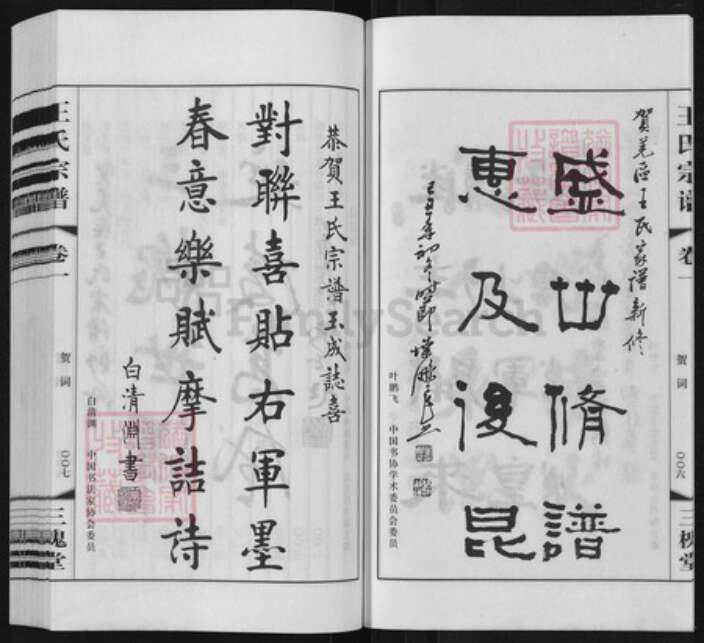 王氏宗谱
卷一
贺词
〇〇六
三槐堂
贺羌區王氏家譜新修
盛世脩譜
惠及後昆
叶鹏飞 中国书协学术委员会委员
恭賀王氏宗譜玉成誌喜
對聯喜貼右軍墨
春意樂賦摩詰詩
白清淵書
白清渊 中国书法家协会委员
王氏宗譜
卷一
贺词
〇〇七
三槐堂
FamilySearch